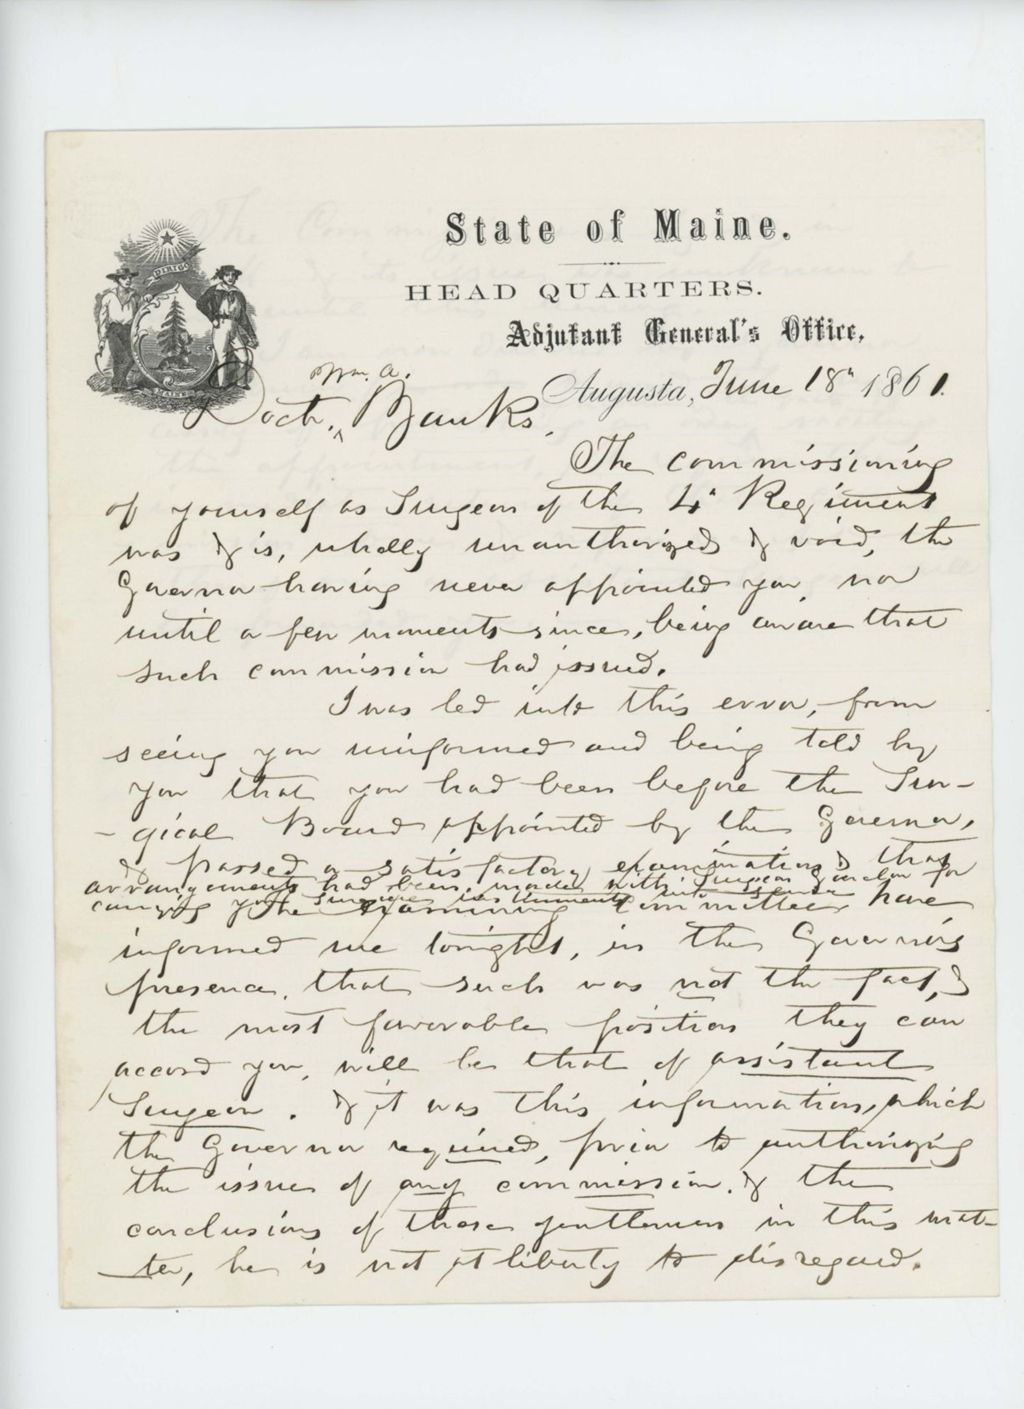 State of Maine.
HEAD QUARTERS.
Adjutant General's Office,
DIRIGO
MAINE
Augusta, June 18" 1861.
Doct. Wm. A. Banks,
The commissioning
of yourself as Surgeon of the 4" Regiment
was & is, wholly unauthorized & void, the
Governor having never appointed you, nor
until a few moments since, being aware that
such commission had issued.
I was led into this error, from
seeing you uniformed and being told by
you that you had been before the Sur-
-gical Board appointed by the Governor,
& passed a satisfactory examination & that
arrangements had been made with Surgeon Garcelon for
carrying your surgical instruments
The Examining Committee have
informed me tonight, in the Governors
presence, that such was not the fact, &
the most favorable position they can
accord you, will be that of assistant
Surgeon. & it was this information, which
the Governor required, prior to authorizing
the issue of any commission. & the
conclusions of those gentlemen in this mat-
-ter, he is not at liberty to disregard.